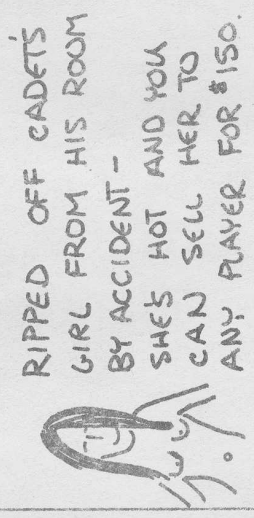 RIPPED OFF CADET'S
GIRL FROM HIS ROOM
BY ACCIDENT—
SHE'S HOT AND YOU
CAN SELL HER TO
ANY PLAYER FOR $150.